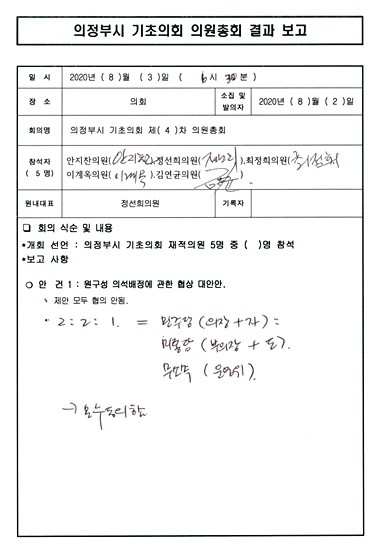 의정부시 기초의회 의원총회 결과 보고
일 시 2020년 ( 8 )월 ( 3 )일 ( 6 시 30분 )
장 소 의회 소집 및 발의자 2020년 ( 8 )월 ( 2 )일
회의명 의정부시 기초의회 제( 4 )차 의원총회
참석자 ( 5 명) 안지찬의원(안지찬),정선희의원( ),최정희의원(최정희)
이계옥의원(이계옥),김연균의원( )
원내대표 정선희의원 기록자
❏ 회의 식순 및 내용
*개회 선언 : 의정부시 기초의회 재적의원 5명 중 ( )명 참석
*보고 사항
❍ 안 건 1 : 원구성 의석배정에 관한 협상 대안안.
、 제안 모두 협의 안됨.
· 2 : 2 : 1. = 민주당 (의장 + 자) :
미통당 (부의장 + 도).
무소속 (운영위).
→ 모두 동의함